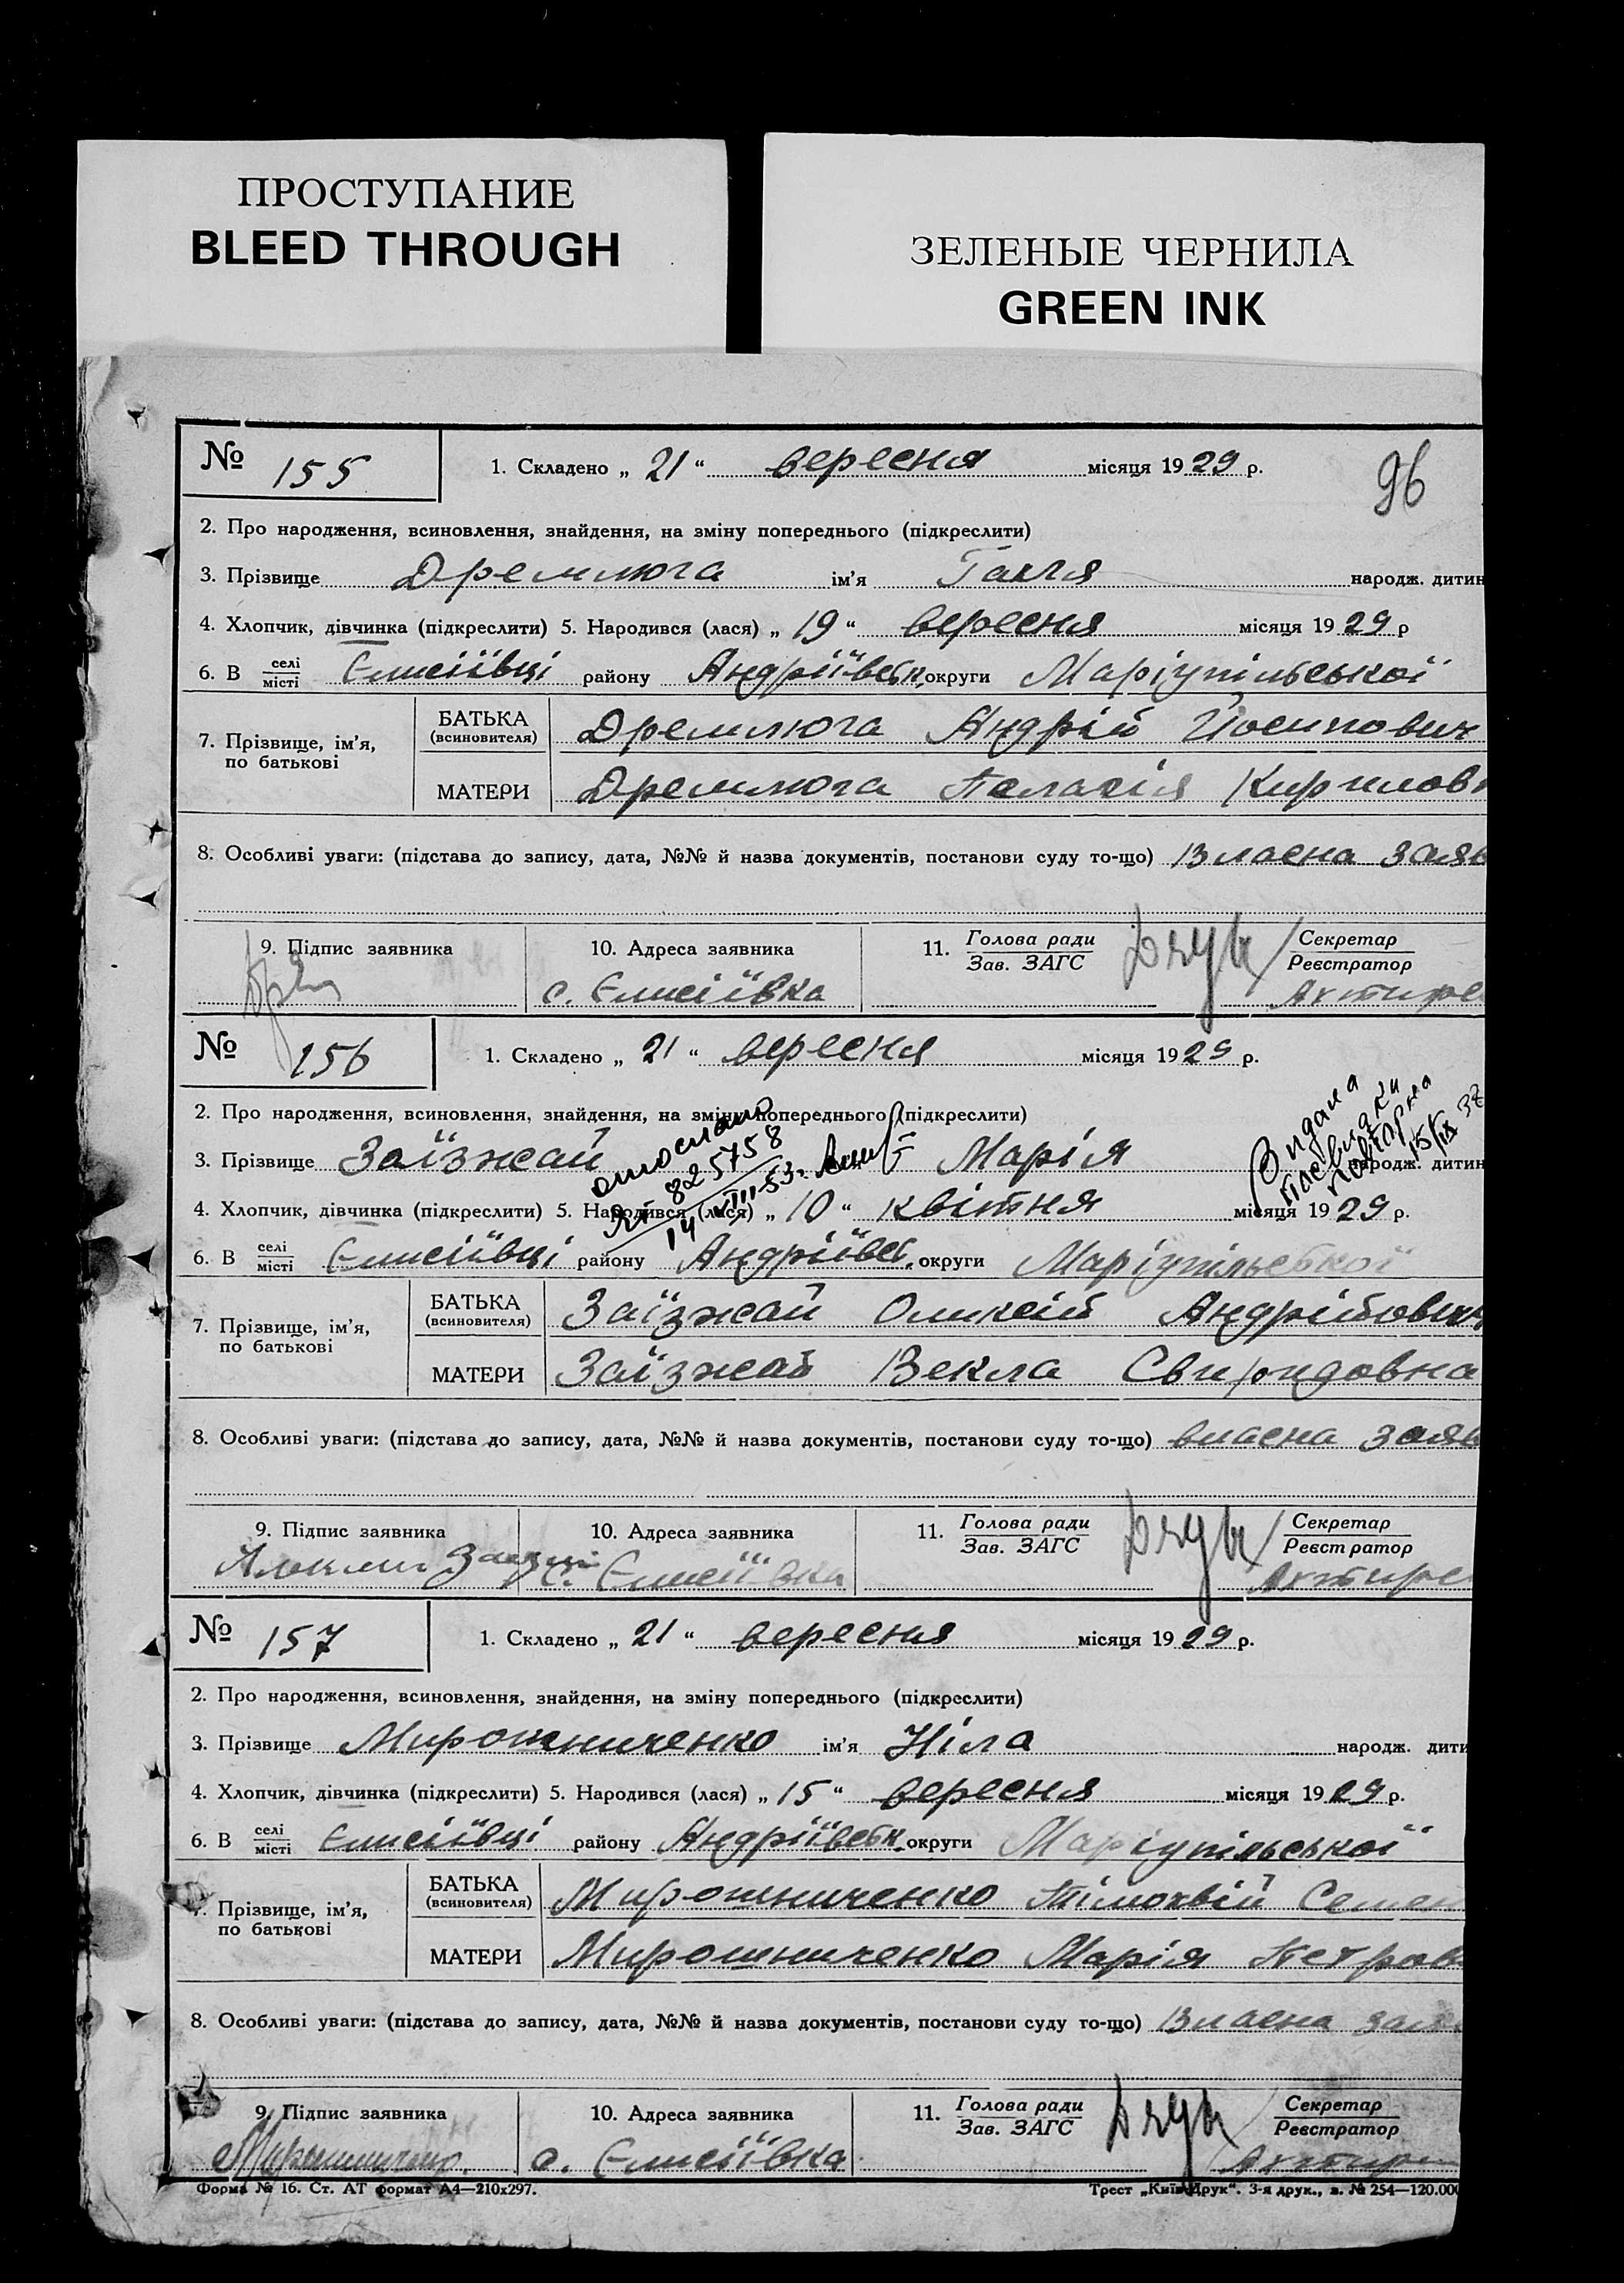 ПРОСТУПАНИЕ
BLEED THROUGH
ЗЕЛЕНЫЕ ЧЕРНИЛА
GREEN INK
96
№ 155
1. Складено „ 21 “ вересня місяця 1929 р.
2. Про народження, всиновлення, знайдення, на зміну попереднього (підкреслити)
3. Прізвище Дремлюга ім’я Галя народж. дитин
4. Хлопчик, дівчинка (підкреслити) 5. Народився (лася) „ 19 “ вересня місяця 1929 р
6. В селі місті Єлисіївці району Андріївськ. округи Маріупільської
7. Прізвище, ім’я, по батькові
БАТЬКА (всиновителя) Дремлюга Андрій Йосипович
МАТЕРИ Дремлюга Пелагія Кирилов
8. Особливі уваги: (підстава до запису, дата, №№ й назва документів, постанови суду то-що) Власна заяв
9. Підпис заявника
10. Адреса заявника с. Єлисіївка
11. Голова ради Зав. ЗАГС
Секретар Реєстратор
№ 156
1. Складено „ 21 “ вересня місяця 1929 р.
2. Про народження, всиновлення, знайдення, на зміну попереднього (підкреслити)
3. Прізвище Заїзжай Марія народж. дитин
отослано
825758
14 VIII-53.
Видана
повторна
15/IX 32
4. Хлопчик, дівчинка (підкреслити) 5. Народився (лася) „ 10 “ квітня місяця 1929 р.
6. В селі місті Єлисіївці району Андріївсь. округи Маріупільської
7. Прізвище, ім’я, по батькові
БАТЬКА (всиновителя) Заїзжай Оликсій Андрійович
МАТЕРИ Заїзжай Векла Свиридовна
8. Особливі уваги: (підстава до запису, дата, №№ й назва документів, постанови суду то-що) власна заяв
9. Підпис заявника
10. Адреса заявника с. Єлисіївка
11. Голова ради Зав. ЗАГС
Секретар Реєстратор
№ 157
1. Складено „ 21 “ вересня місяця 1929 р.
2. Про народження, всиновлення, знайдення, на зміну попереднього (підкреслити)
3. Прізвище Мирошниченко ім’я Ніла народж. дити
4. Хлопчик, дівчинка (підкреслити) 5. Народився (лася) „ 15 “ вересня місяця 1929 р.
6. В селі місті Єлисіївці району Андріївськ. округи Маріупільської
7. Прізвище, ім’я, по батькові
БАТЬКА (всиновителя) Мирошниченко Тімохвій Семен
МАТЕРИ Мирошниченко Марія Петров
8. Особливі уваги: (підстава до запису, дата, №№ й назва документів, постанови суду то-що) Власна заяв
9. Підпис заявника
10. Адреса заявника с. Єлисіївка
11. Голова ради Зав. ЗАГС
Секретар Реєстратор
Форма № 16. Ст. АТ формат А4—210х297.
Трест „Київ-Друк“. 3-я друк., з. № 254—120.000